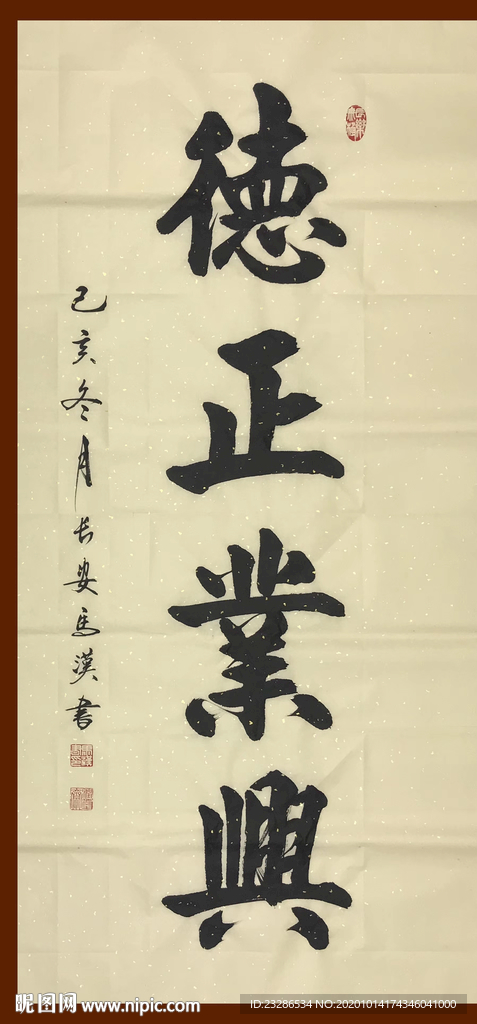 德正業興
己亥冬月长安馬漢书
昵图网 www.nipic.com
ID:23286534 NO.20201014174346041000